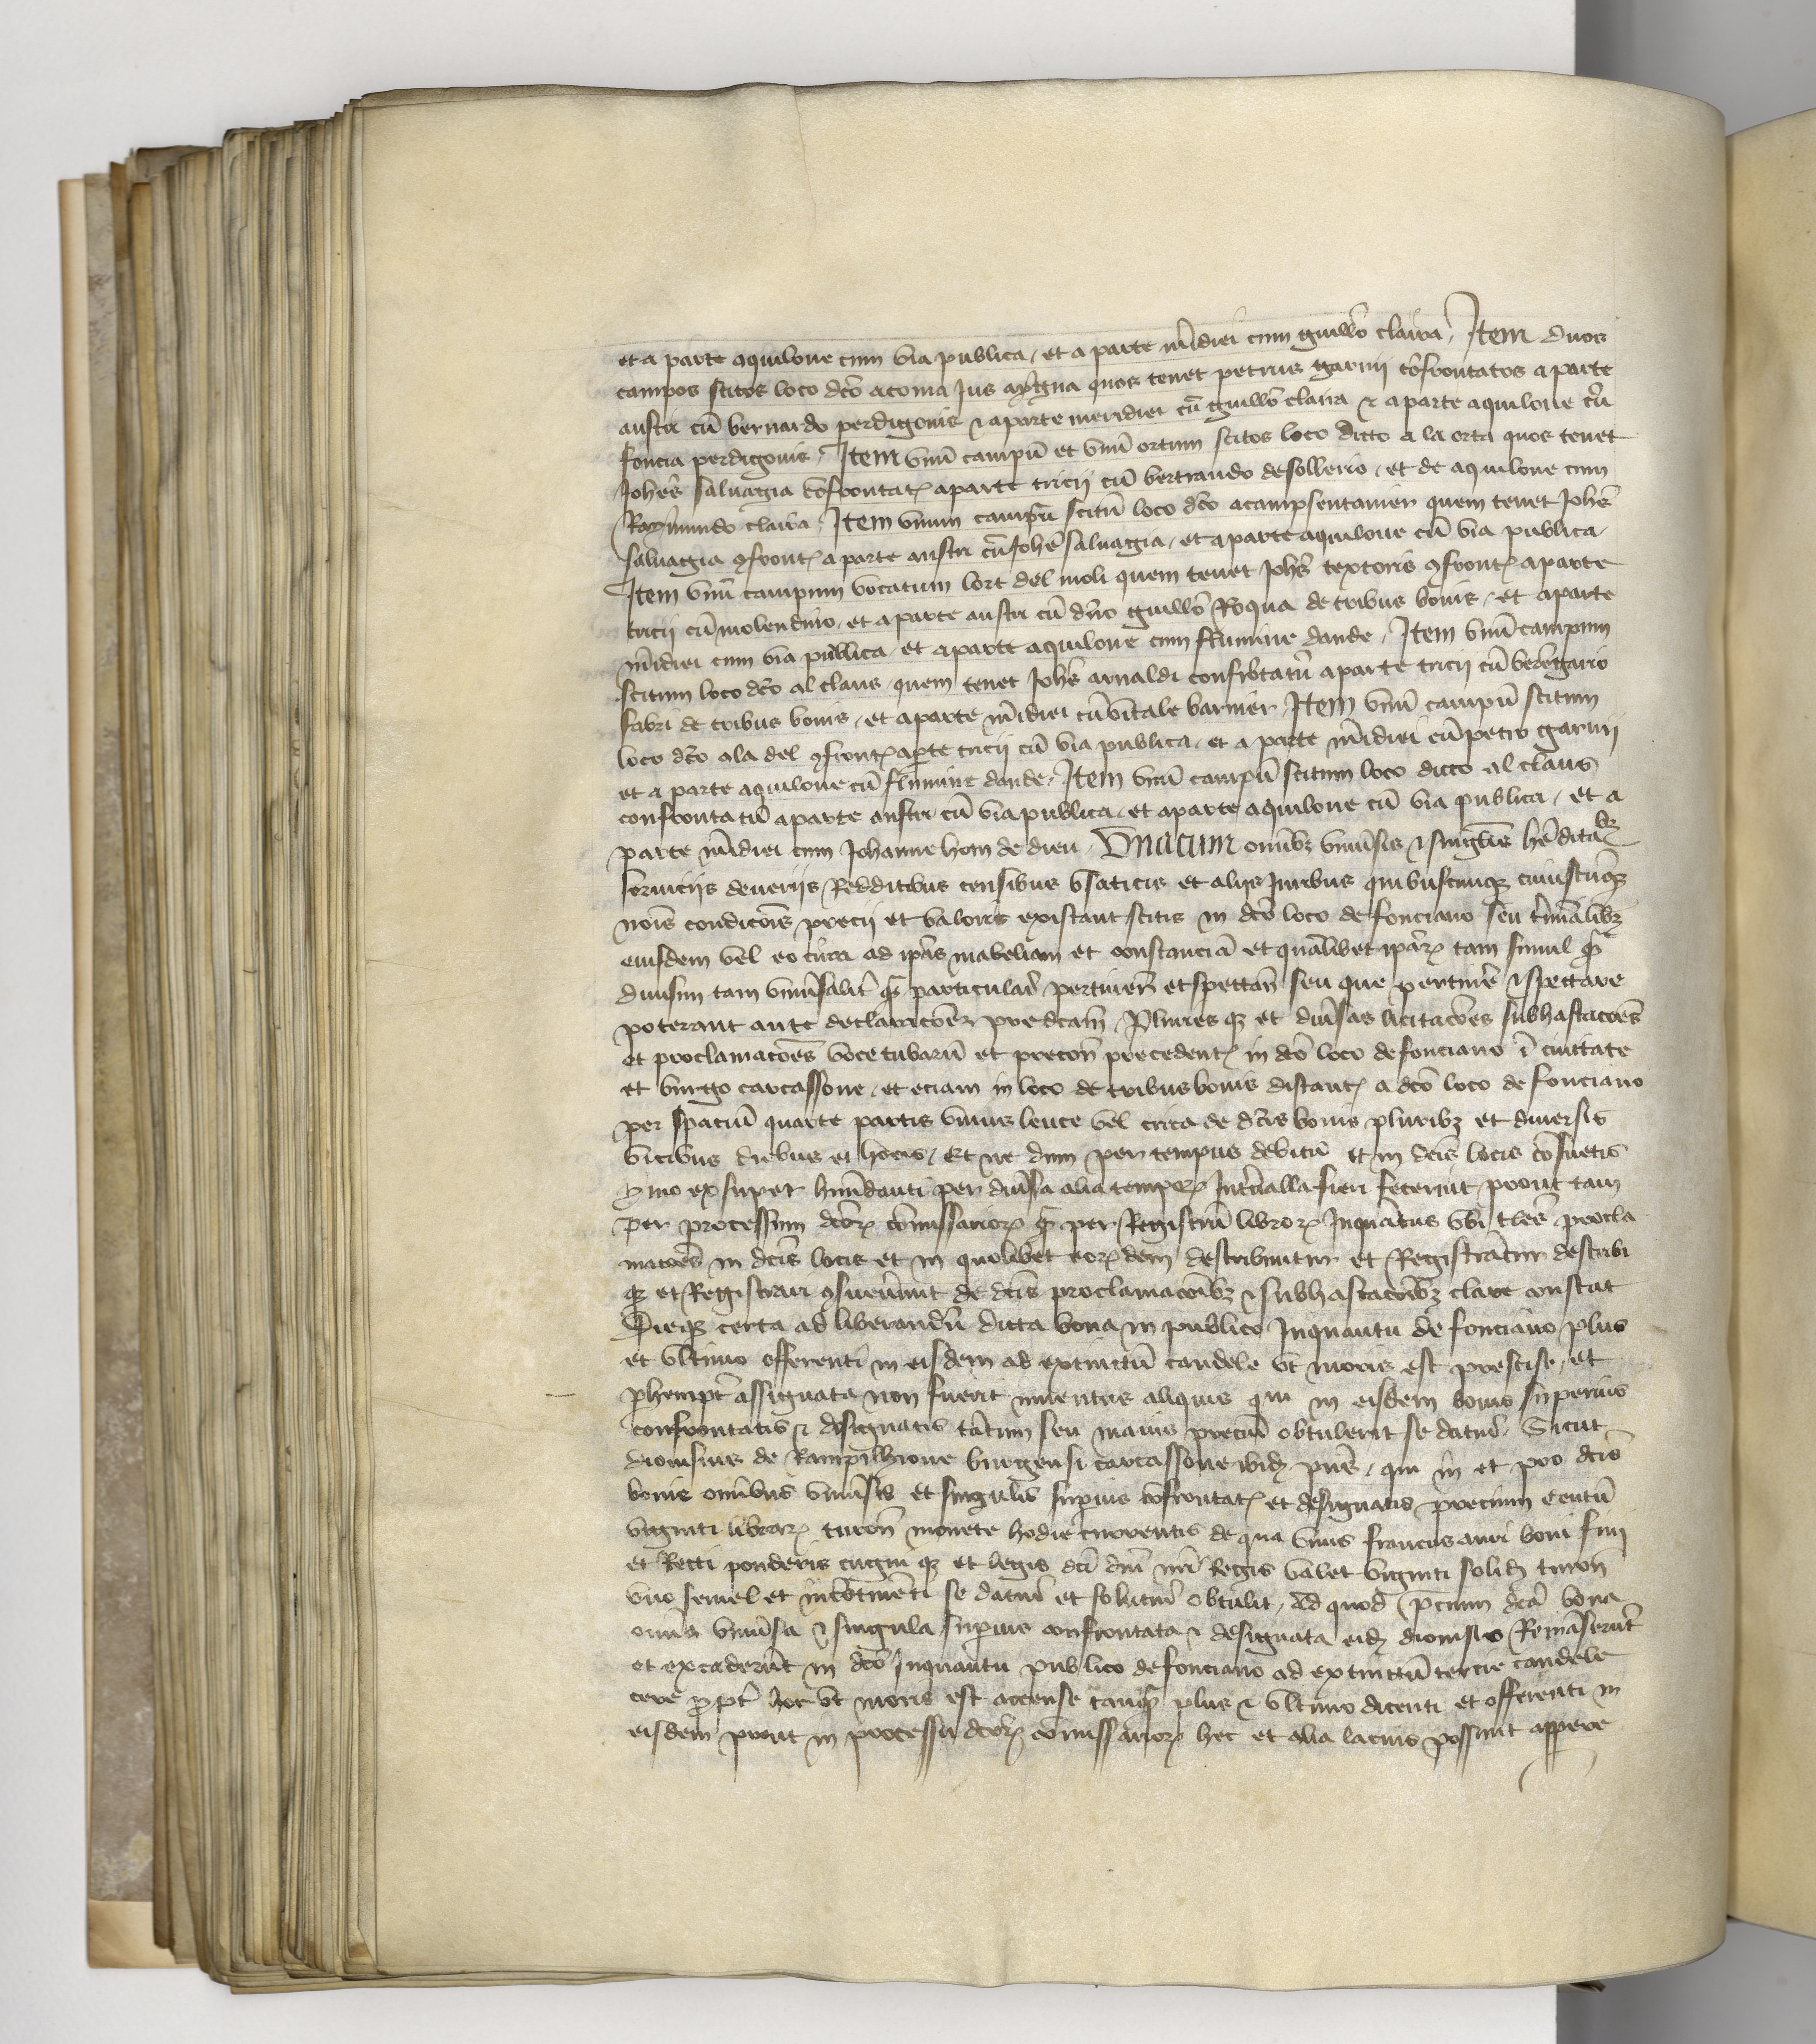 et a parte aquilone cum via publica / et a parte m̄idiei cum guill̄o claira / Item duos
campos scitos loco dc̄o a coma Jus ayḡna quos tenet petrus garnij cōfrontatos a parte
austri cū bernardo perdigonis & a parte meridiei cū guill̄o claira & a parte aquilone cū
foncia perdigonis / Item vnū campū et vnū ortum scitos loco dicto a la orta quos tenet
Joh̄es saluagia cōfrontat̄ a parte circij cū bertrando de sollerio / et de aquilone cum
Raymundo claira / Item vnum campū scitū loco dc̄o a campsentanier quem tenet Joh̄es
saluagia ꝯfront̄ a parte austri cū Joh̄e saluagia / et a parte aquilone cū via publica /
Item vnū campum vocatum lort del moli quem tenet Joh̄es textoris ꝯfront̄ a parte
circij cū molendino / et a parte austri cū dn̄o guill̄o Roqua de tribus bonis / et a parte
m̄idiei cum via publica / et a parte aquilone cum flumine dande / Item vnū campum
scitum loco dc̄o al claus / quem tenet Joh̄es arnaldi confrōtatū a parte circij cū beren̄gario
fabri de tribus bonis / et a parte m̄idiei cū vitale barnier / Item vnū campū scitum
loco dc̄o ala del ꝯfront̄ a parte circij cū via publica / et a parte m̄idiei cū petro garnij
et a parte aquilone cū flumine dande / Item vnū campū scitum loco dicto al claus
confrontatū a parte austri cū via publica / et a parte aquilone cū via publica / et a
parte m̄idiei cum Johanne hom de dieu / Vnacum om̄ibꝫ vniu̓sis & singul̄is h̓editatibꝫ
seruiciis deueriis Redditibus censibus vsaticis et aliis Juribus quibuscunqꝫ cuiuscūqꝫ
nōis condicōis precii et valoris existant scitis in dc̄o loco de fonciano seu t̓minalibꝫ
eiusdem vel eo circa ad ip̄as mabeliam et constanciā et quāl̄ibet ip̄arꝝ tam simul qꝫ̄
diuisim tam vniu̓salit̓ qꝫ̄ particular̓ pertinen̄ et spectan̄ seu que pertin̓e & spectare
poterant ante declaracōem predcām / Plures qꝫ et diu̓sas licitacōes subhastacōes
et proclamacōes voce tubarū et precon̄ precedent̄ in dc̄o loco de fonciano ī ciuitate
et burgo carcassone / et eciam in loco de tribus bonis distant̄ a dc̄o loco de fonciano
per spaciū quarte partis vnius leuce vel circa de dc̄is bonis pluribꝫ et diuersis
vicibus diebus et horis / Et ne dum per tempus debitū et in dc̄is locis cōsuetis
ymo ex super habūdanti per diu̓sa alia temporꝝ Int̓ualla fieri fecerunt prout tam
per processum dc̄orꝝ cōmissariorꝝ qꝫ̄ per Registrū librorꝝ Inquātus vbi tales procla
macōes in dc̄is locis et in quolibet eorꝝdem describuntur et Registrātur describi
qꝫ et Registrari ꝯsueuerunt de dc̄is proclamacōibꝫ & subhastacōibꝫ clare constat
Dieqꝫ certa ad liberandū dicta bona in publico Inquantu de fonciano plus
et vltimo offerenti in eisdem ad extinctū candele vt moris est prescise / et
ꝑhempt̓ assignata non fuerit inuentus aliquis qui in eisdem bonis superius
confrontatis & designatis tātum seu maius preciū obtulerit se daturū / Sicut
dionisius de Rampilhione burgensi carcassone ibidꝫ pn̄s / qui in et pro dc̄is
bonis om̄ibus vniu̓sis et singul̄is sup̓ius cōfrontat̄ et designatis precium Centū
viginti librarꝝ turon̄ monete hodie currentis de qua vnus francus auri boni fini
et Recti ponderis cugni qꝫ et legis dc̄i dn̄i nr̄i Regis valet viginti solidꝫ turon̄
vno semel et incōtinēti se daturū et soluturū obtulit / Ad quod precium dc̄a bona
om̄ia vniu̓sa & singula superius confrontata & designata eidꝫ dionisio Remāserūt
et exciderūt in dc̄o Inquantu publico de fonciano ad extinctū tercie candele
cere ꝓpt̓ hoc vt moris est accense tanqꝫ̄ plus & vltimo dicenti et offerenti in
eisdem prout in processu dc̄orꝝ cōmissariorꝝ hec et alia lacius possunt app̄ere